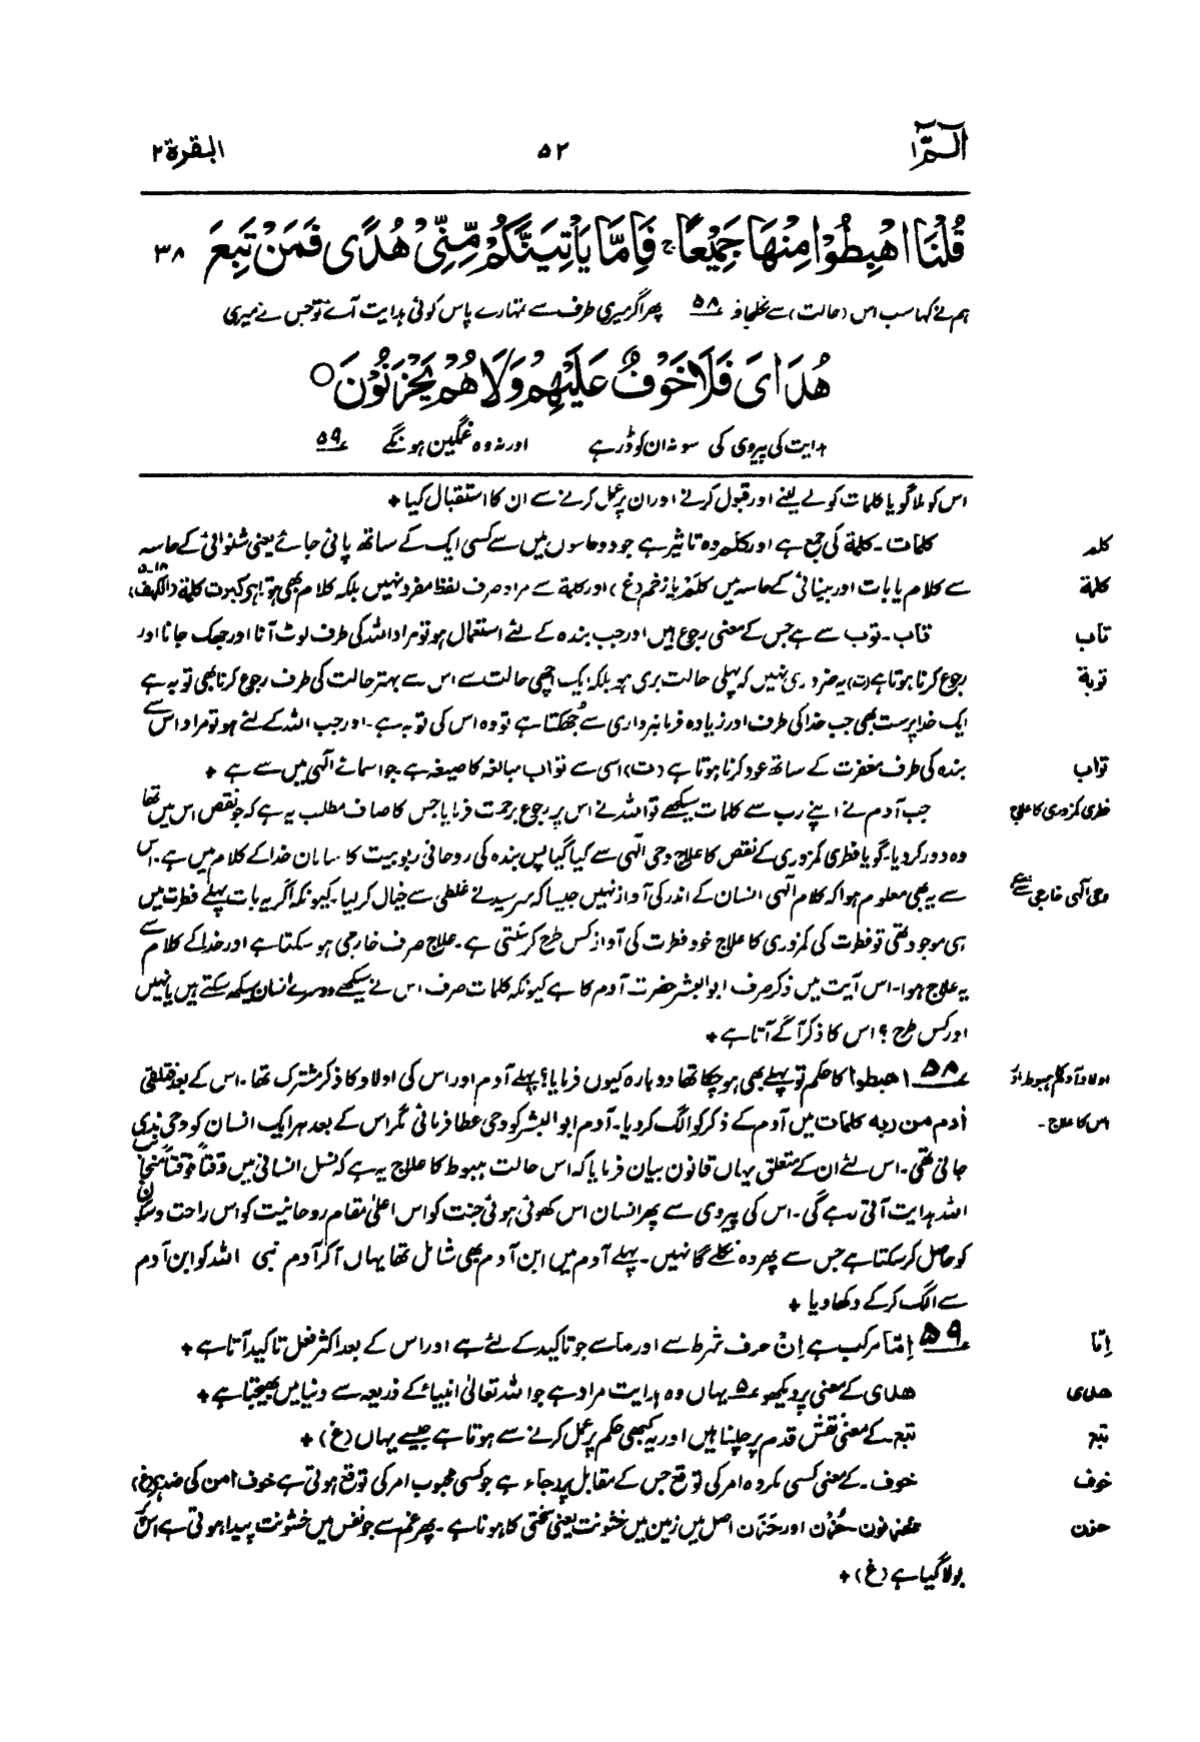 الٓمّٓ ۱ ۵۲ البقرۃ ۲
قُلْنَا اهْبِطُوْا مِنْهَا جَمِيْعًا ۚ فَاِمَّا يَاْتِيَنَّكُمْ مِّنِّيْ هُدًى فَمَنْ تَبِعَ ۳۸
ہم نے کہا سب اس (حالت) سے نکلجاؤ ۵۸ پھر اگر میری طرف سے تمہارے پاس کوئی ہدایت آئے تو جس نے میری
هُدَايَ فَلَا خَوْفٌ عَلَيْهِمْ وَلَا هُمْ يَحْزَنُوْنَ ○
ہدایت کی پیروی کی سو نہ ان کو ڈر ہے اور نہ وہ غمگین ہونگے ۵۹
اس کو ملا گویا کلمات کو لے لینے اور قبول کرنے اور ان پر عمل کرنے سے ان کا استقبال کیا ✦
کلمہ کلمات۔ کلمة کی جمع ہے اور کلم وہ تاثیر ہے جو دو حاسوں میں سے کسی ایک کے ساتھ پائی جائے یعنی شنوائی کے حاسہ
کلمة سے کلام یا بات اور بینائی کے حاسہ میں کلم یا زخم (غ) اور کلمة سے مراد صرف لفظ مفرد نہیں بلکہ کلام بھی ہوتا ہے کبرت کلمة (الکہف ۱۸-۵)
تاب تاب۔ توب سے ہے جس کے معنی رجوع ہیں اور جب بندہ کے لئے استعمال ہو تو مراد اللہ کی طرف لوٹ آنا اور جھک جانا اور
توبة رجوع کرنا ہوتا ہے (ت) یہ ضروری نہیں کہ پہلی حالت بری ہو بلکہ ایک اچھی حالت سے اس سے بہتر حالت کی طرف رجوع کرنا بھی توبہ ہے
ایک خدا پرست بھی جب خدا کی طرف اور زیادہ فرمانبرداری سے جھکتا ہے تو وہ اس کی توبہ ہے۔ اور جب اللہ کے لئے ہو تو مراد اس سے
تواب بندہ کی طرف مغفرت کے ساتھ عود کرنا ہوتا ہے (ت) اسی سے تواب مبالغہ کا صیغہ ہے جو اسمائے الٰہی میں سے ہے ✦
فطری کمزوری کا علاج جب آدم نے اپنے رب سے کلمات سیکھے تو اللہ نے اس پر رجوع برحمت فرمایا جس کا صاف مطلب یہ ہے کہ جو نقص اس میں تھا
وہ دور کر دیا۔ گویا فطری کمزوری کے نقص کا علاج وحی الٰہی سے کیا گیا پس بندہ کی روحانی ربوبیت کا سامان خدا کے کلام میں ہے۔ اس
وحی الٰہی خارجی ہے سے یہ بھی معلوم ہوا کہ کلام الٰہی انسان کے اندر کی آواز نہیں جیسا کہ سرسید نے غلطی سے خیال کر لیا۔ کیونکہ اگر یہ بات پہلے فطرت میں
ہی موجود تھی تو فطرت کی کمزوری کا علاج خود فطرت کی آواز کس طرح کر سکتی ہے۔ علاج صرف خارجی ہو سکتا ہے اور خدا کے کلام سے
یہ علاج ہوا۔ اس آیت میں ذکر صرف ابوالبشر حضرت آدم کا ہے کیونکہ کلمات صرف اس نے سیکھے دوسرے انسان سیکھ سکتے ہیں یا نہیں
اور کس طرح؟ اس کا ذکر آگے آتا ہے ✦
اولاد آدم کا ہبوط اور ۵۸ اهبطوا کا حکم تو پہلے بھی ہو چکا تھا دوبارہ کیوں فرمایا؟ پہلے آدم اور اس کی اولاد کا ذکر مشترک تھا۔ اس کے بعد فتلقی
اس کا علاج۔ اٰدم من ربه کلمات میں آدم کے ذکر کو الگ کر دیا۔ آدم ابوالبشر کو وحی عطا فرمائی مگر اس کے بعد ہر ایک انسان کو وحی نہ دی
جاتی تھی۔ اس لئے ان کے متعلق یہاں قانون بیان فرمایا کہ اس حالت ہبوط کا علاج یہ ہے کہ نسل انسانی میں وقتاً فوقتاً منجانب
اللہ ہدایت آتی رہے گی۔ اس کی پیروی سے پھر انسان اس کھوئی ہوئی جنت کو اس اعلیٰ مقام روحانیت کو اس راحت و سکون
کو حاصل کر سکتا ہے جس سے پھر وہ نکلے گا نہیں۔ پہلے آدم میں ابن آدم بھی شامل تھا یہاں آکر آدم نبی اللہ کو ابن آدم
سے الگ کر کے دکھا دیا ✦
اِمّا ۵۹ اِمّا مرکب ہے اِنْ حرف شرط سے اور ما سے جو تاکید کے لئے ہے اور اس کے بعد اکثر فعل تاکید آتا ہے ✦
هدی هدای کے معنی پر دیکھو ۵ یہاں وہ ہدایت مراد ہے جو اللہ تعالیٰ انبیائ کے ذریعہ سے دنیا میں بھیجتا ہے ✦
تبع تبع۔ کے معنی نقش قدم پر چلنا ہیں اور یہ کبھی حکم پر عمل کرنے سے ہوتا ہے جیسے یہاں (غ) ✦
خوف خوف۔ کے معنی کسی مکروہ امر کی توقع جس کے مقابل پر رجاء ہے جو کسی محبوب امر کی توقع ہوتی ہے خوف امن کی ضد ہے (غ)
حزن یحزنون۔ حُزْن اور حَزَن اصل میں زمین میں خشونت یعنی سختی کا ہونا ہے۔ پھر غم سے جو نفس میں خشونت پیدا ہوتی ہے اس پر
بولا گیا ہے (غ) ✦